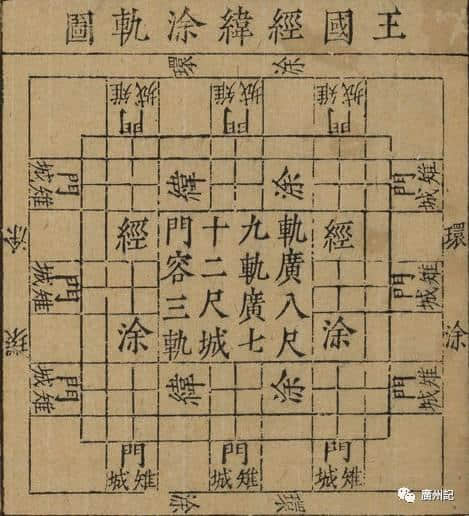 王國經緯涂軌圖
環涂
門城雉
門城雉
門城雉
門城雉
緯涂
門城雉
環涂
經涂
軌廣八尺
九軌廣七
十二尺城
門容三軌
經涂
環涂
門城雉
門城雉
門城雉
緯涂
門城雉
門城雉
門城雉
門城雉
環涂
廣州記